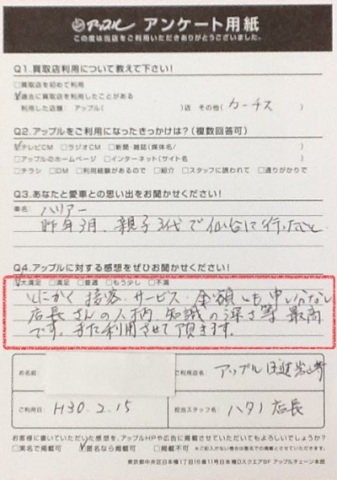 アップル アンケート用紙
この度は当店をご利用いただきありがとうございました。
Q1.買取店利用について教えて下さい!
□買取店を初めて利用
☑過去に買取店を利用したことがある
利用した店舗: アップル( )店 その他( カーチス )
Q2.アップルをご利用になったきっかけは?(複数回答可)
☑テレビCM □ラジオCM □新聞・雑誌(媒体名/ )
□アップルのホームページ □インターネット(サイト名 )
□チラシ □DM □利用経験があるので □紹介 □スタッフに誘われて □通りがかりで
Q3.あなたと愛車との思い出をお聞かせください!
車名: ハリアー
昨年3月、親子3代で仙台に行ったこと
Q4.アップルに対する感想をぜひお聞かせください!
☑大満足 □満足 □普通 □もう少し □不満
とにかく接客、サービス・金額も申し分なし
店長さんの人柄、知識の深さ等 最高
です。また利用させて頂きます。
お名前
ご利用店名: アップル
ご利用日: H30.2.15
担当スタッフ名: ハタノ店長
お客様に書いていただいた感想を、アップルHPや広告に掲載させていただいてもよろしいでしょうか?
□実名で掲載可 ☑匿名なら掲載可 □掲載不可